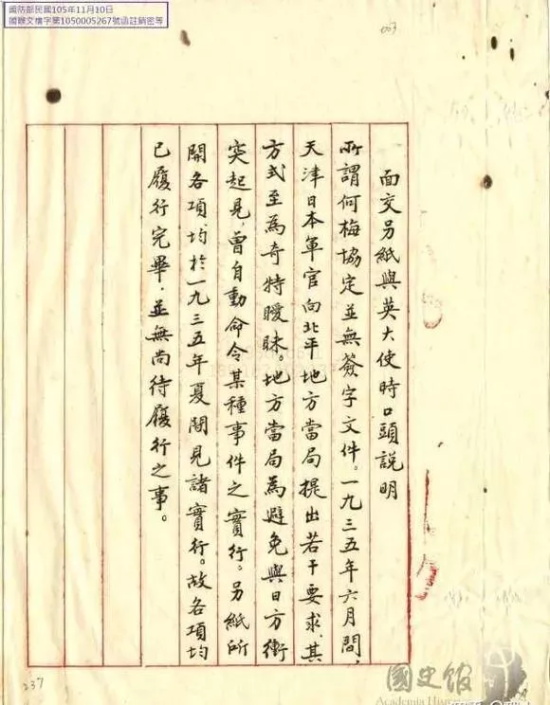 國防部民國105年11月10日
國辦文檔字第1050005267號函註銷密等
面交另紙與英大使時口頭說明
所謂何梅協定並無簽字文件。一九三五年六月間，
天津日本軍官向北平地方當局提出若干要求，其
方式至為奇特曖昧。地方當局為避免與日方衝
突起見，曾自動命令某種事件之實行。另紙所
開各項均於一九三五年夏間見諸實行。故各項均
已履行完畢，並無尚待履行之事。
237
國史館
Academia His